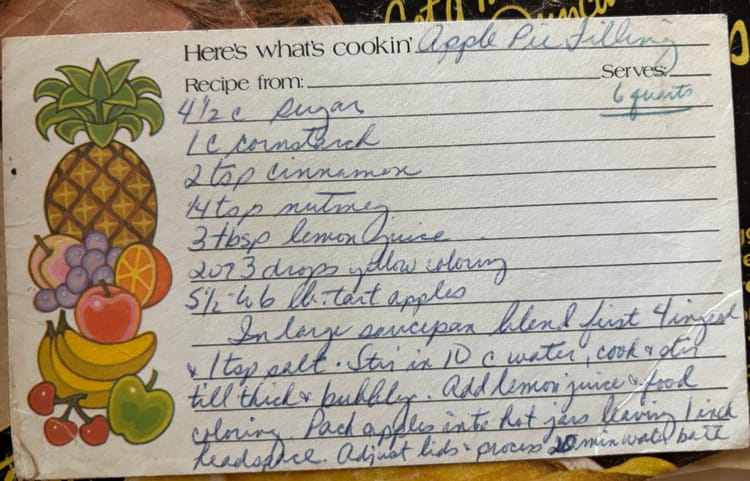 Here's what's cookin' Apple Pie Filling
Recipe from: Serves:
6 quarts
4 1/2 c sugar
1 c cornstarch
2 tsp cinnamon
1/4 tsp nutmeg
3 tbsp lemon juice
2 or 3 drops yellow coloring
5 1/2 - to 6 lb. tart apples
In large saucepan blend first 4 ingred
& 1 tsp salt. Stir in 10 c water, cook & stir
till thick & bubbly. Add lemon juice & food
coloring. Pack apples into hot jars leaving 1 inch
headspace. Adjust lids & process 20 min water bath